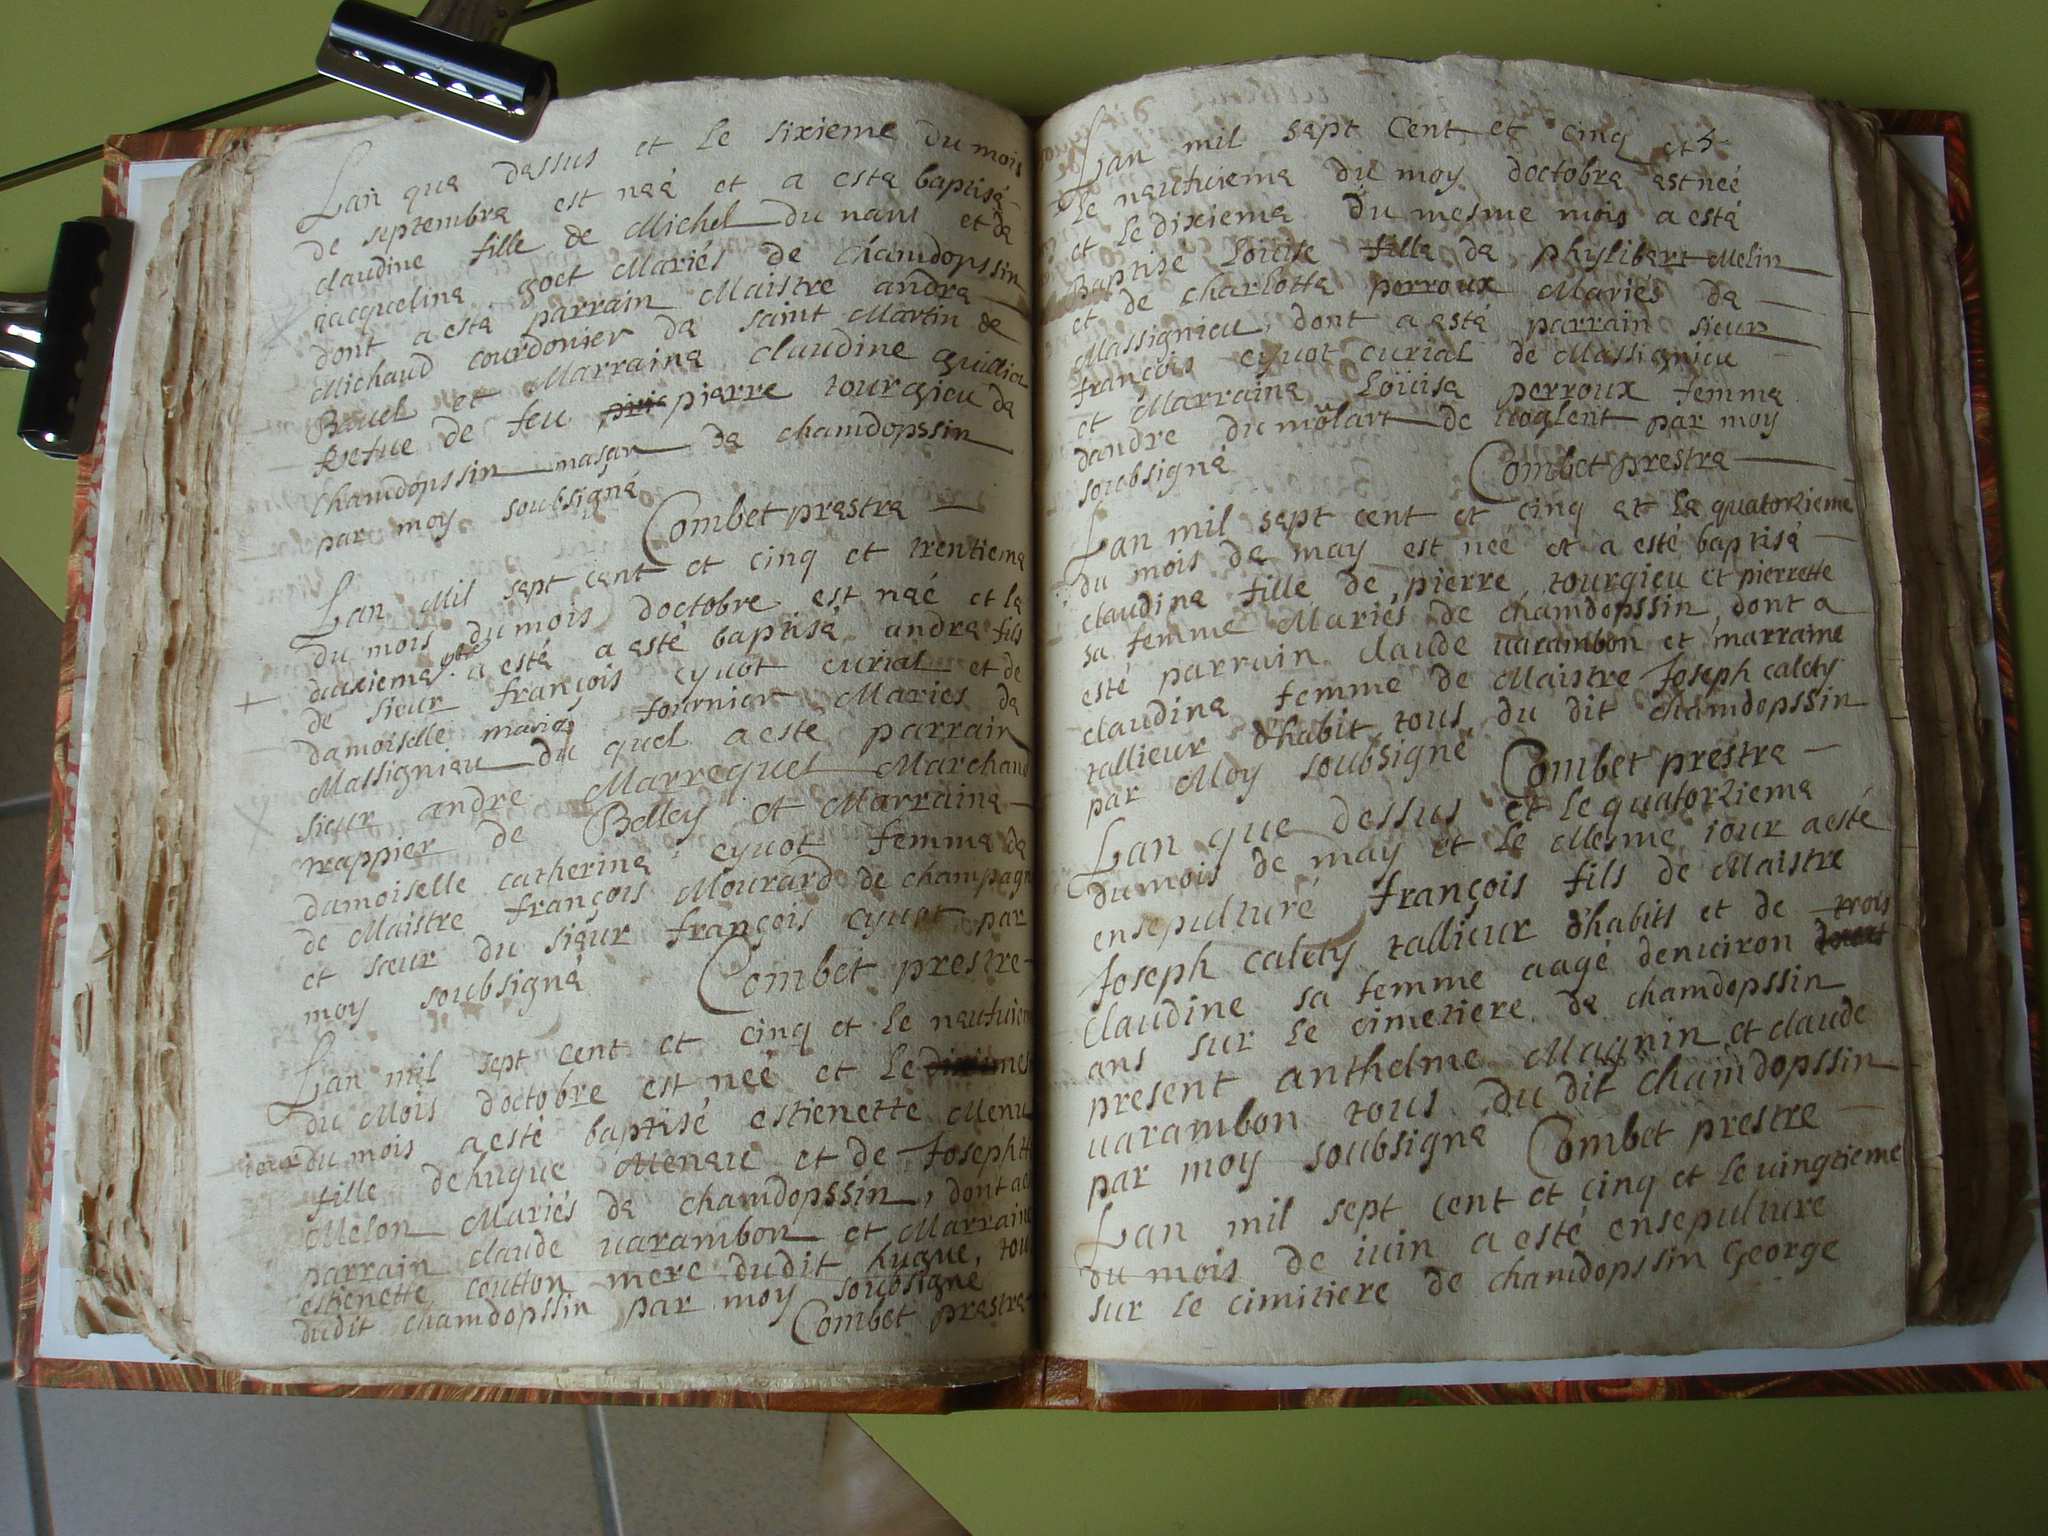 Lan que dessus et le sixieme du mois
de septembre est neé et a esté baptisé
claudine fille de Michel du nant et de
jacqueline goct Mariés de chamdopssin
dont a esté parrain Maistre andre
Michaud courdonier de saint Martin de
Bauel et Marraine claudine
vefue de feu pierre tourgieu de
chamdopssin masar de chamdopssin
par moy soubsigné
Combet prestre
Lan Mil sept cent et cinq et trentieme
du mois du mois doctobre est neé et le
duxieme a esté a esté baptisé andre fils
de sieur françois cyuot curial et de
damoiselle marie fournier Mariés de
Massignieu du quel a esté parrain
sieur andre Marrequet Marchand
trappier de Belley et Marraine
damoiselle catherine cyuot femme de
de Maistre françois Mourard de champagn
et sœur du sieur françois cyuot par
moy soubsigné Combet prestre
Lan mil sept cent et cinq et le neufuiem
du Mois doctobre est neé et le mesme
iour du mois a esté baptisé estienette Menu
fille de hugue Menau et de Josepht
Melon Mariés de chamdopssin, dont a e
parrain claude uarambon et Marraine
estienette coutton mere dudit hugue, tou
dudit chamdopssin par moy soubsigné
Combet prestre
Lan mil sept Cent et cinq et
le neufuieme du moy doctobre est neé
et le dixieme du mesme mois a esté
Baptisé loüise fille de phylibert Melin
et de charlotte perroux Mariés de
Massignieu, dont a esté parrain sieur
françois cyuot curial de Massignieu
et Marraine Loüise perroux femme
dandre du molart de uoglent par moy
soubsigné Combet prestre
Lan mil sept cent et cinq et le quatorzieme
du mois de may est neé et a esté baptisé
claudine fille de pierre tourgieu et pierrette
sa femme Mariés de chamdopssin dont a
esté parrain claude uarambon et marraine
claudine femme de Maistre Joseph calety
tallieur dhabit tous du dit chamdopssin
par Moy soubsigné Combet prestre
Lan que dessus et le quatorzieme
du mois de may et le Mesme iour a esté
ensepulturé françois fils de Maistre
Joseph calety tallieur dhabits et de
Claudine sa femme aagé denuiron trois
ans sur le cimetiere de chamdopssin
present anthelme Magnin et claude
uarambon tous du dit chamdopssin
par moy soubsigné Combet prestre
Lan mil sept cent et cinq et le uingtieme
du mois de iuin a esté ensepulture
sur le cimitiere de chamdopssin George